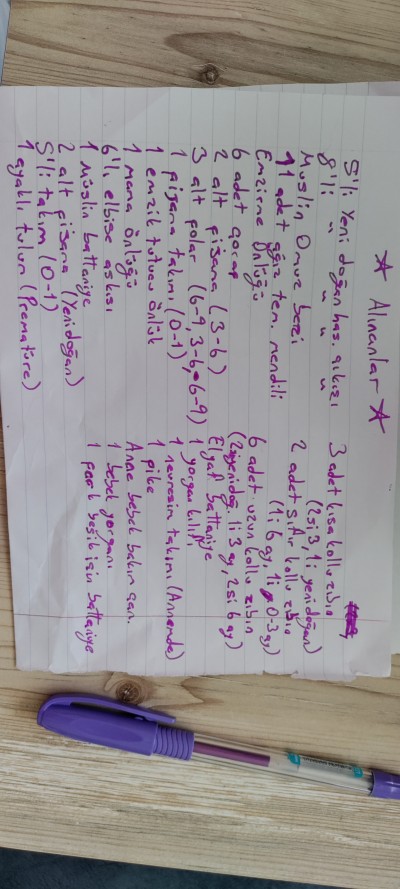 ★ Alınanlar ★
5'li Yeni doğan has. çıkışı
8'li " " " "
Muslin Omuz bezi
11 adet ağız tem. mendili
Emzirme Önlüğü
6 adet çorap
2 alt pijama (3-6)
3 alt polar (6-9, 3-6, 6-9)
1 pijama takımı (0-1)
1 emzik tutucu önlük
1 mama önlüğü
6'lı elbise askısı
1 müslin battaniye
2 alt pijama (Yenidoğan)
5'li takım (0-1)
1 ayaklı tulum (Premature)
3 adet kısa kollu zıbın
(2si 3, 1i yenidoğan)
2 adet sıfır kollu zıbın
(1i 6 ay, 1i 0-3 ay)
6 adet uzun kollu zıbın
(2 yenidoğ. 1i 3 ay, 2si 6 ay)
Elyaf battaniye
1 yorgan kılıfı
1 nevresim takımı (Annemde)
1 pike
Anne bebek bakım çan.
1 bebek yorganı
1 park beşik için battaniye